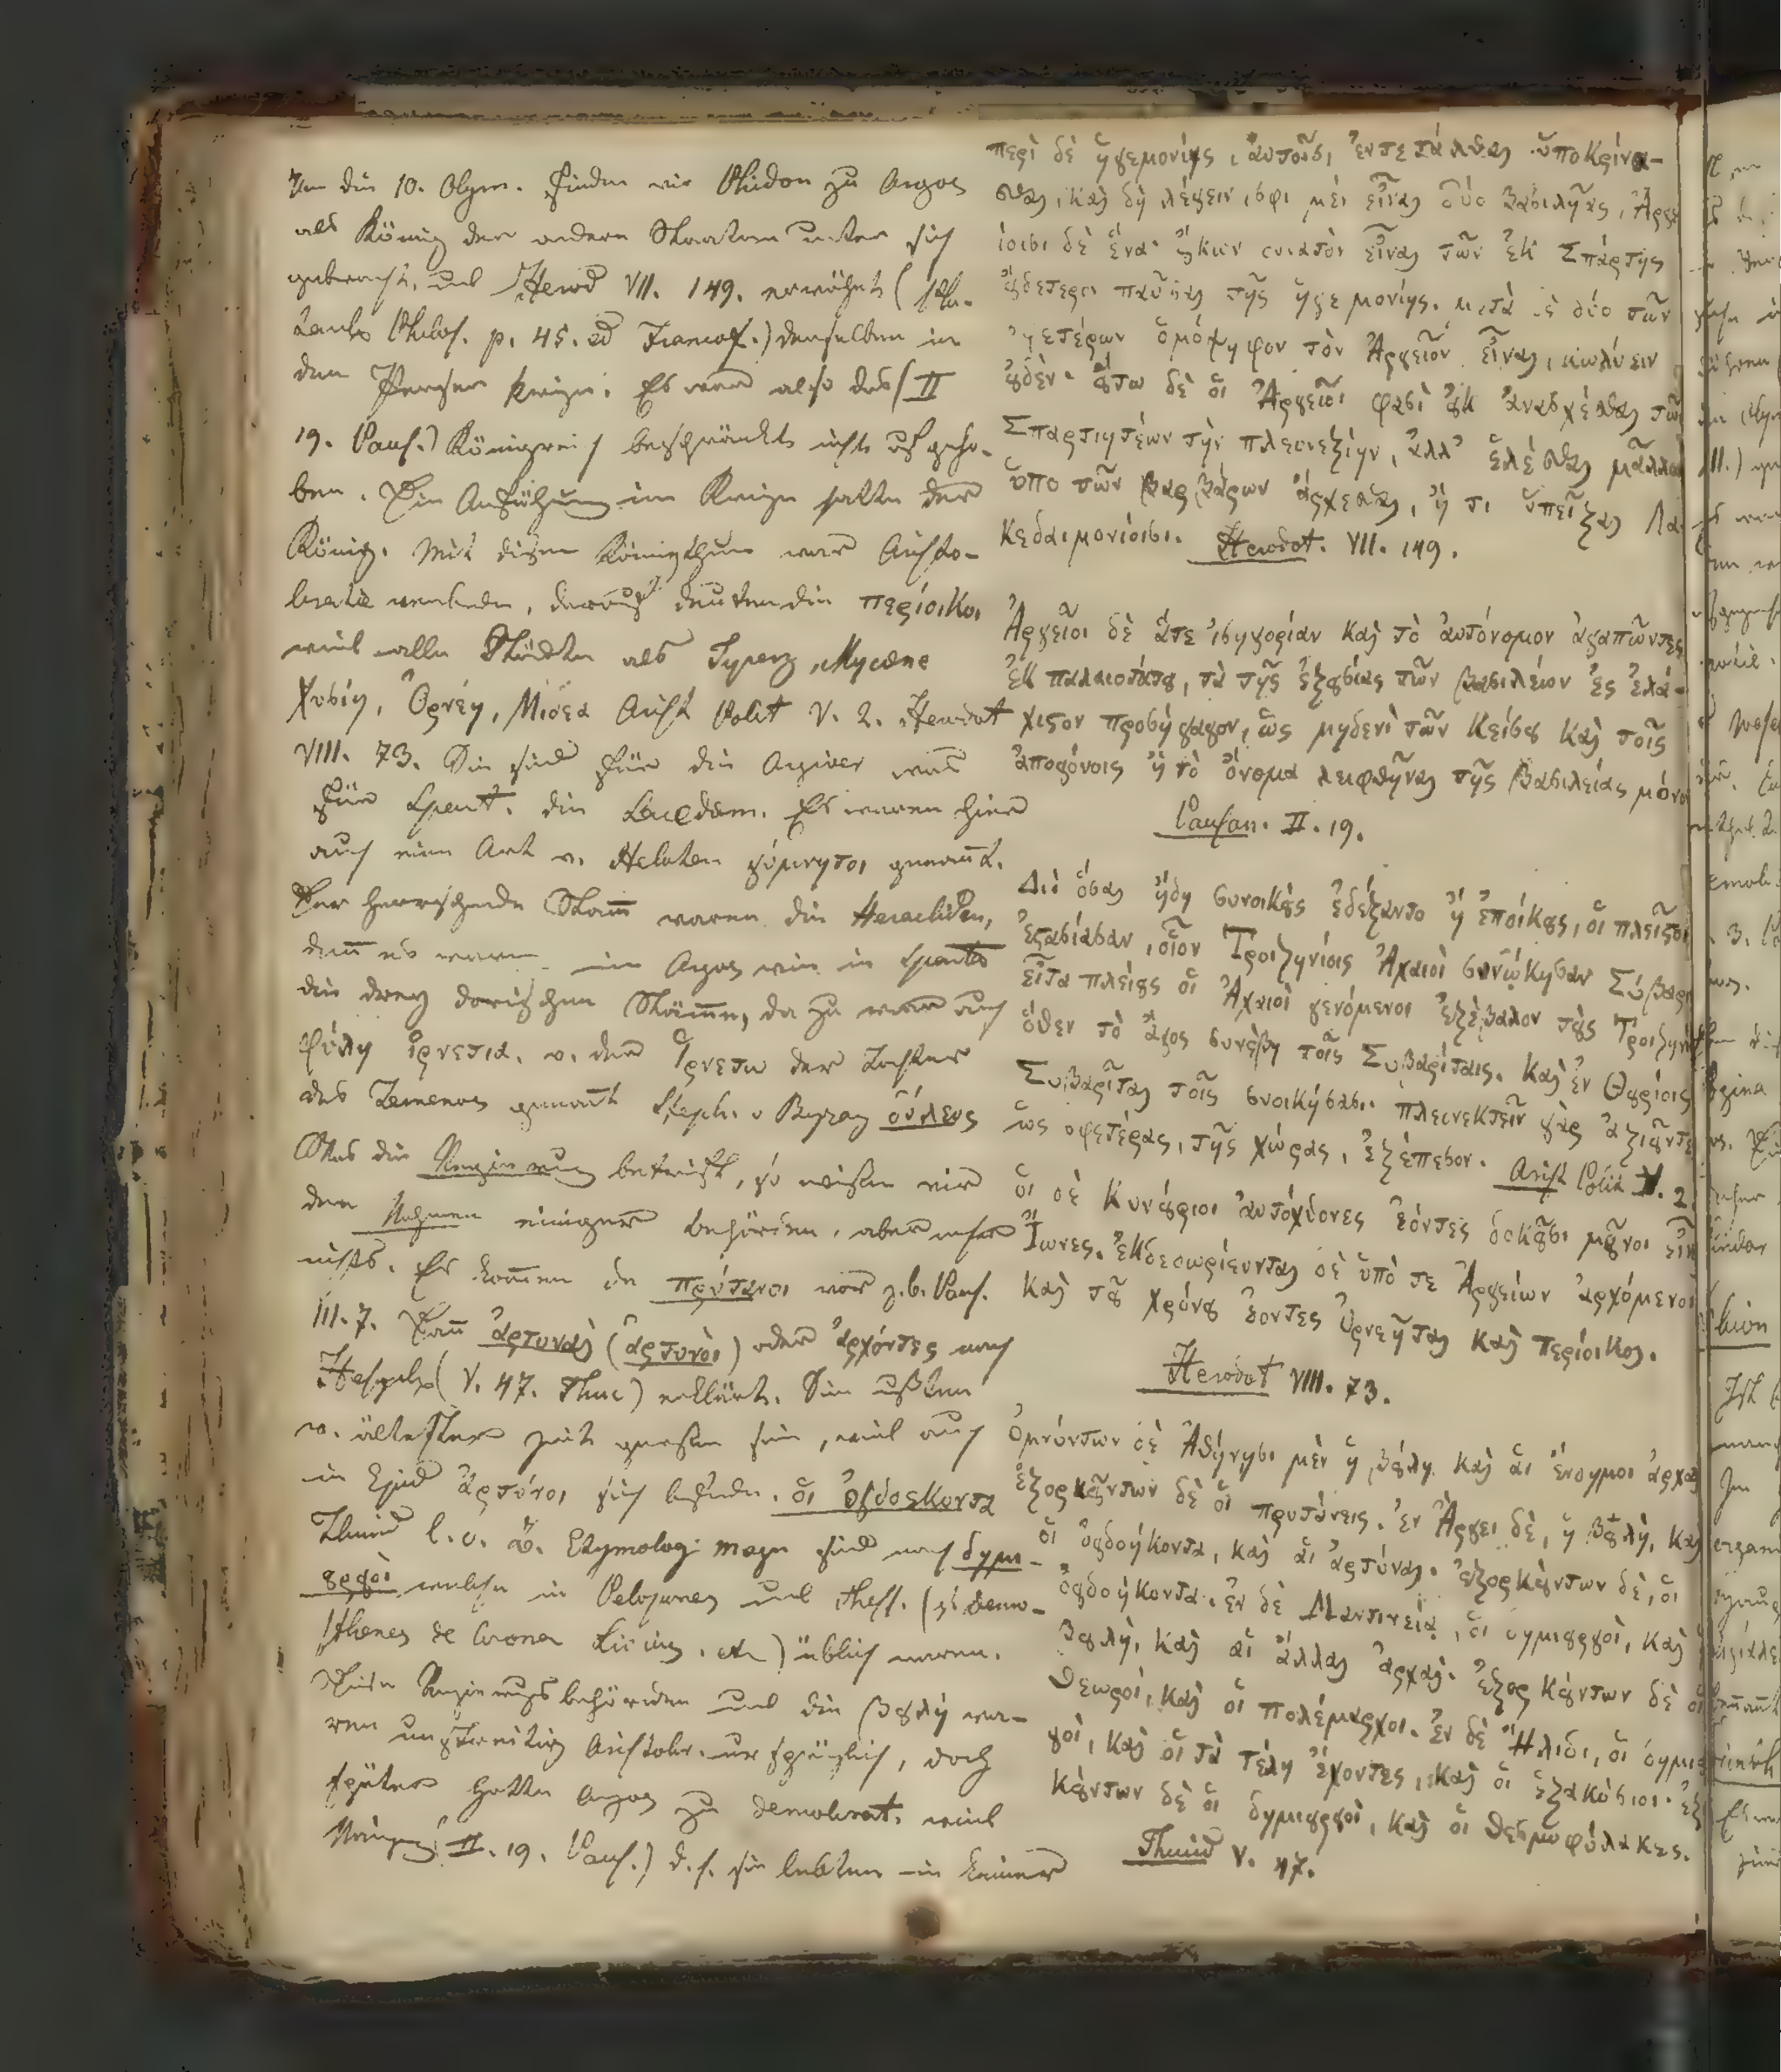 Um die 10. Olym. finden wir Phidon zu Argos
als König der andere Staaten unter sich
gebracht, und Herod VII. 149. erwähnt (Plu-
tarch Philos. p. 45. ed Francof.) denselben in
dem Perser kriege. Es war also das (II
19. Paus.) Königreich beschränkt nicht aufgeho-
ben. Die Anführung im Kriege hatte der
König. Mit diesem Königthum war Aristo-
kratie verbunden, darauf deuten die περίοικοι
weil alle Städte als Tyrenz, Mycene
Χυσίη, Ὀρνέη, Μιδεα Arist Polit V. 2. Herodot
VIII. 73. Sie sind für die Argiver was
für Spart. die Lacedäm. Es waren hier
auch eine Art v. Heloten γύμνητοι genannt.
Der herrschende Stamm waren die Heracliden,
denn es waren in Argos wie in Sparta
die drey dorischen Stämme, da zu war auch
φύλη ὑρνετια. v. der Ὑρνετω der Tochter
des Temenos genannt Steph. v Byzanz
Was die Regierung betrifft, so wissen wir
den Nahmen einiger Behörden, aber mehr
nichts. Es kommen die πρύτανοι vor z.b. Paus.
III. 7. Dann ἀρτυναὶ (ἀρτυνοὶ) oder ἀρχόντες nach
Hesych (V. 47. Thuc) erklärt. Sie mußten
v. ältester Zeit gewesen sein, weil auch
in Epid ἀρτύνοι sich befinden. οἱ ὀγδοεκοντα
Thucid l. c. Etymolog. magn sind noch δημι-
ȣργοὶ welche in Pelopones und Thess. (Demo-
sthenes de Corona Livius. etc) üblich waren.
Diese Regierungsbehörden und die βȣλὴ wa-
ren unstreitig Aristokr. ursprünglich, doch
später hatte Argos zu demokrat. weil
II. 19. Paus.) d. h. sie lebten in keiner
περὶ δὲ ἡγεμονίης, αὐτοῖσι ἐντετάλθαι ὑποκρίνα-
σθαι, καὶ δὴ λέγειν, σφι μὲν εἶναι δύο βασιλῆας, Ἀργε
ίοισι δὲ ἕνα· ὔκων δυνατὸν εἶναι τῶν ἐκ Σπάρτης
ȣδετερον παῦσαι τῆς ἡγεμονίης. μετὰ δὲ δύο τῶν
ἡμετέρων ὁμόψηφον τὸν Ἀργεῖον εἶναι, κωλύειν
ȣδὲν. ȣτω δὲ οἱ Ἀργεῖοι φασὶ ȣκ ἀνασχέσθαι τῶν
Σπαρτιητέων τὴν πλεονεξίην, ἀλλ' ἑλέσθαι μᾶλλον
ὑπο τῶν βαρβάρων ἄρχεσθαι, ἤ τι ὑπεῖξαι Λα
κεδαιμονίοισι. Herodot. VII. 149.
Ἀργεῖοι δὲ ἅτε ἰσηγορίαν καὶ τὸ αὐτόνομον ἀγαπῶντες
ἐκ παλαιοτάτȣ, τὰ τῆς ἐξȣσίας τῶν βασιλέων ἐς ἐλά-
χιςον προσήγαγον, ὡς μηδενὶ τῶν Κείσȣ καὶ τοῖς
ἀπογόνοις ἢ τὸ ὄνομα λειφθῆναι τῆς βασιλείας μόνον
Pausan. II. 19.
Διὸ ὅσοι ἤδη συνοικȣς ἐδέξαντο ἢ ἐποίκȣς, οἱ πλεῖςοι
ἐςασίασαν, οἷον Τροιζηνίοις Ἀχαιοὶ συνῴκησαν Σύβαριν
εἶτα πλείȣς οἱ Ἀχαιοὶ γενόμενοι ἐξέβαλον τȣς Τροιζηνί
ὅθεν τὸ ἄγος συνέβη τοῖς Συβαρίταις. Καὶ ἐν Θȣρίοις
Συβαρῖται τοῖς συνοικήσασι. πλεονεκτεῖν γὰρ ἀξιȣντες
ὡς σφετέρας, τῆς χώρας, ἐξέπεσον. Arist Polit V. 2
οἱ δὲ Κυνȣριοι αὐτόχθονες ἐόντες δοκȣσι μȣνοι εἶν
Ἴωνες. ἐκδεδωρίευνται δὲ ὑπό τε Ἀργείων ἀρχόμενοι
καὶ τȣ χρόνȣ ἐοντες Ὀρνεῆται καὶ περίοικοι.
Herodot VIII. 73.
Ὀμνύντων δὲ Ἀθήνησι μὲν ἡ βȣλὴ καὶ αἱ ἔνδημοι ἀρχαὶ
ἐξορκȣντων δὲ οἱ πρυτάνεις. ἐν Ἄργει δὲ, ἡ βȣλὴ, καὶ
οἱ ὀγδοήκοντα, καὶ αἱ ἀρτύναι. ἐξορκȣντων δὲ, οἱ
ὀγδοήκοντα. ἐν δὲ Μαντινείᾳ, οἱ δημιȣργοὶ, καὶ ἡ
βȣλὴ, καὶ αἱ ἄλλαι ἀρχαὶ. ἐξορκȣντων δὲ οἱ
θεωροὶ, καὶ οἱ πολέμαρχοι. ἐν δὲ Ἤλιδι, οἱ δημιȣρ
γοὶ, καὶ οἱ τὰ τέλη ἔχοντες, καὶ οἱ ἑξακόσιοι. ἐξορ
κȣντων δὲ οἱ δημιȣργοὶ, καὶ οἱ θεσμοφύλακες.
Thucid V. 47.